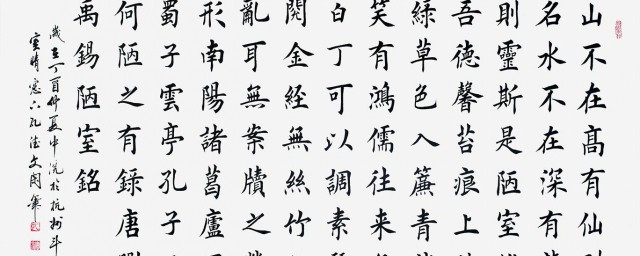 山不在高有仙
名水不在深有
則靈斯是陋室
吾德馨苔痕上
綠草色入簾青
笑有鴻儒往來
白丁可以調素
閱金經無絲竹
亂耳無案牘之
形南陽諸葛廬
蜀子雲亭孔子
何陋之有錄唐
禹錫陋室銘
歲在丁酉仲夏中浣於杭州斗
室晴窓孔德文